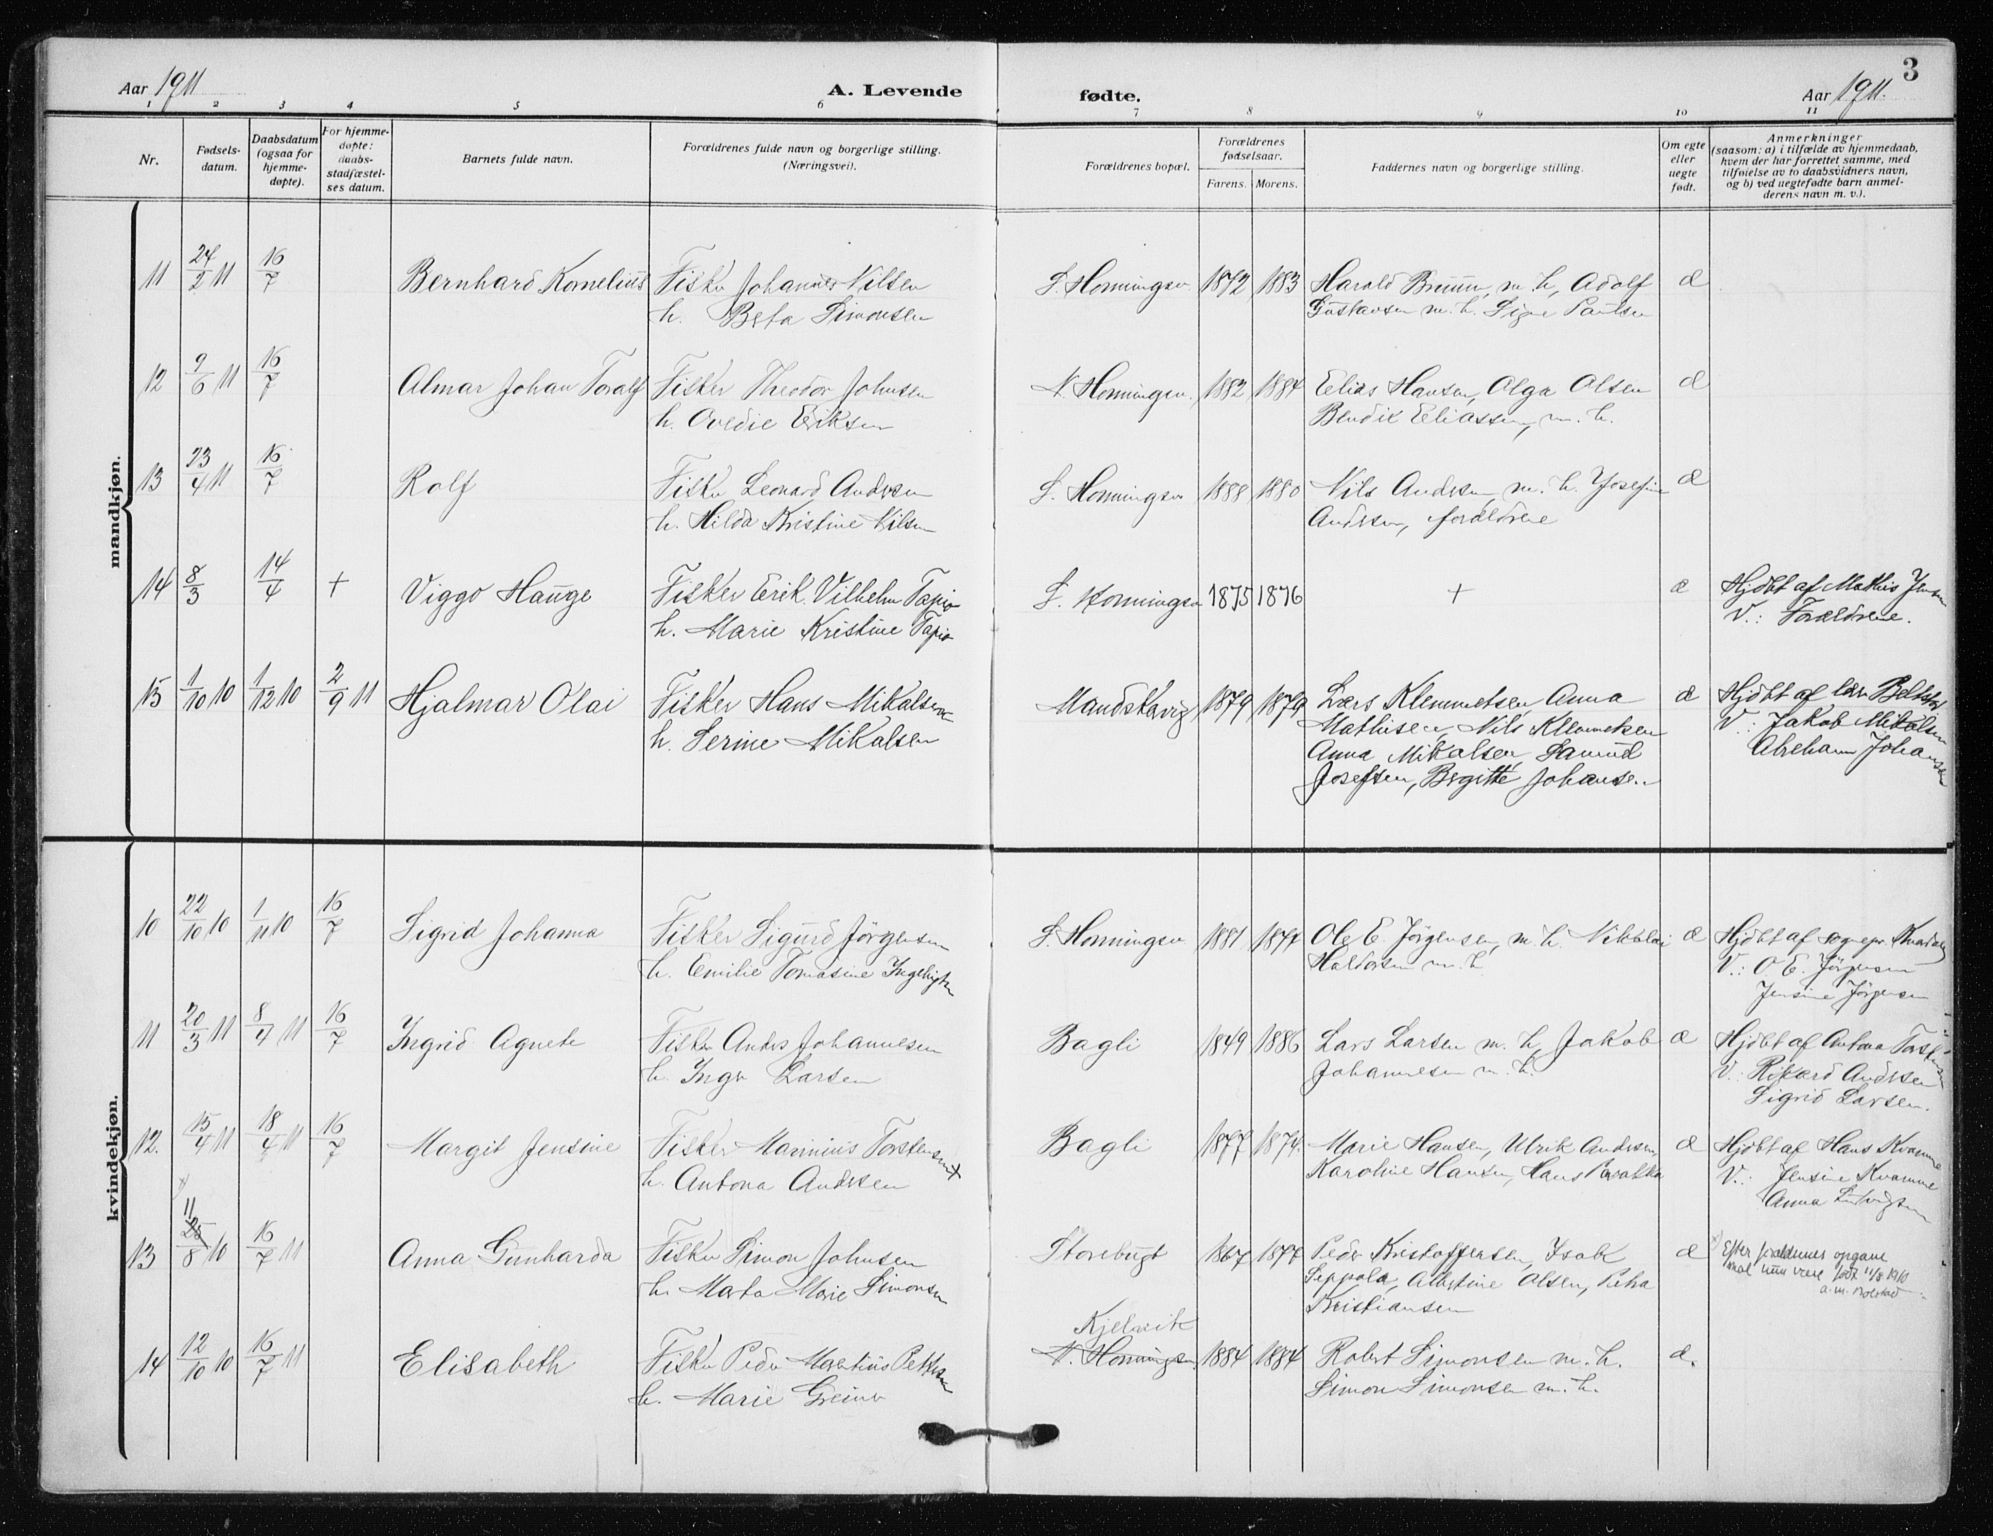 3
Aar 1911 A. Levende fødte. Aar 1911.
1 2 3 4 5 6 7 8 9 10 11
Nr. Fødsels-datum. Daabsdatum (ogsaa for hjemme-døpte). For hjemme-døpte: daabs-stadfæstel-ses datum. Barnets fulde navn. Forældrenes fulde navn og borgerlige stilling. (Næringsvei). Forældrenes bopæl. Forældrenes fødselsaar. Farens. Morens. Faddernes navn og borgerlige stilling. Om egte eller uegte født. Anmerkninger (saasom: a) i tilfælde av hjemmedaab, hvem der har forrettet samme, med tilføielse av to daabsvidners navn, og b) ved uegtefødte barn anmel-derens navn m. v.).
mandkjøn.
11 24/2 11 16/7 Bernhard Kornelius Fisker Johannes Nilsen S. Honningsv 1872 1883 Harald Bruun, m. h, Adolf æ
h. Berta Simonsen Gustavsen m. h. Signe Paulsen
12 9/6 11 16/7 Almar Johan Toralf Fisker Theodor Johnsen N. Honningsv. 1882 1884 Elias Hansen, Olga Olsen æ
h. Ovedie Eriksen Bendix Eliassen, m. h.
13 23/4 11 16/7 Rolf Fisker Leonard Andersen S. Honningsv 1888 1880 Nils Andersen m. h. Josefine æ
h. Hilda Kristine Nilsen Andersen, forældrene
14 8/3 14/4 + Viggo Hauge Fisker Erik Vilhelm Tapio S. Honningsv 1875 1876 + æ Hjdbt af Mathis Jensen
h. Marie Kristine Tapio V.: Forældrene.
15 1/10 10 1/12 10 2/9 11 Hjalmar Olai Fisker Hans Mikalsen Mandskarvig 1879 1879 Lars Klemmetsen Anna æ Hjdbt af
h. Serine Mikalsen Mathisen, Nils Klemmetsen V: Jakob Mikalsen
Anna Mikalsen, Samuel Abraham Johansen
Josefsen, Bergitte Johansen
kvindekjøn.
10 22/10 10 1/11 10 16/7 Sigrid Johanna Fisker Sigurd Jörgensen S. Honningsv 1881 1877 Ole E. Jörgensen, m. h. Nikolai æ Hjdbt af sognepr. Kvandal
h. Emilie Tomasine Haldorsen m. h. V.: O. E. Jörgensen
Jensine Jörgensen
11 20/3 11 8/4 11 16/7 Ingrid Agnete Fisker Anders Johannesen Bagli 1849 1886 Lars Larsen m. h, Jakob æ Hjdbt af Antona Torstensen
h. Inga Larsen Johannesen m. h. V: Rikard Andersen
Sigrid Larsen.
12. 15/4 11 18/4 11 16/7 Margit Jensine Fisker Marinius Torstensen Bagli 1877 1874. Marie Hansen, Ulrik Andersen, æ Hjdbt af Hans Kvamme
h. Antona Andersen Karoline Hansen, Hans V.: Jensine Kvamme
Anna Ludvigsen
x)
11
13 25/8 10 16/7 11 Anna Gunharda Fisker Simon Johnsen Storebugt 1867 1877 Peder Kristoffersen, Isak æ x) Efter forældrenes opgave
h. Marta Marie Simonsen Seppola, Albertine Olsen, Petra skal hun være født 11/8 1910
Kristiansen a. m. Bolstad
Kjelvik
14 12/10 10 16/7 11 Elisabeth Fisker Peder Martinus Pettersen N. Honningsv. 1884 1884 Robert Simonsen m. h. æ.
h. Marie Greiner Simon Simonsen m. h.